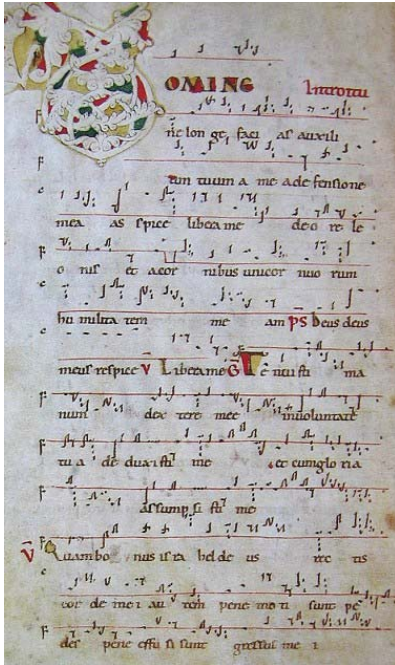 DOMINE Introitu
ne lon ge faci as auxili
um tuum a me ade fensione
mea as spice libera me de o re le
o nis et acor nibus unicor nuo rum
hu milita tem me am PS Deus deus
meus respice V Libera me G Te nui sti ma
num dex tere mee inuoluntate
tu a de duxi sti me et cumglo ria
assump si sti me
V Quambo nus isra hel de us rec tis
cor de me i au tem pene mo ti sunt pe
des pene effu si sunt gressus me i